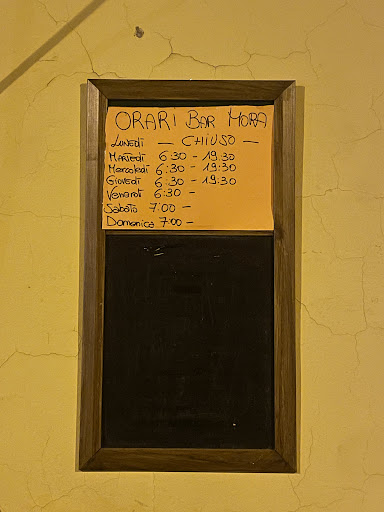 ORARI BAR MORA
LUNEDÌ — CHIUSO —
MARTEDÌ 6:30 - 19:30
Mercoledì 6:30 - 19:30
Giovedì 6:30 - 19:30
Venerdì 6:30 -
Sabato 7:00 -
Domenica 7:00 -